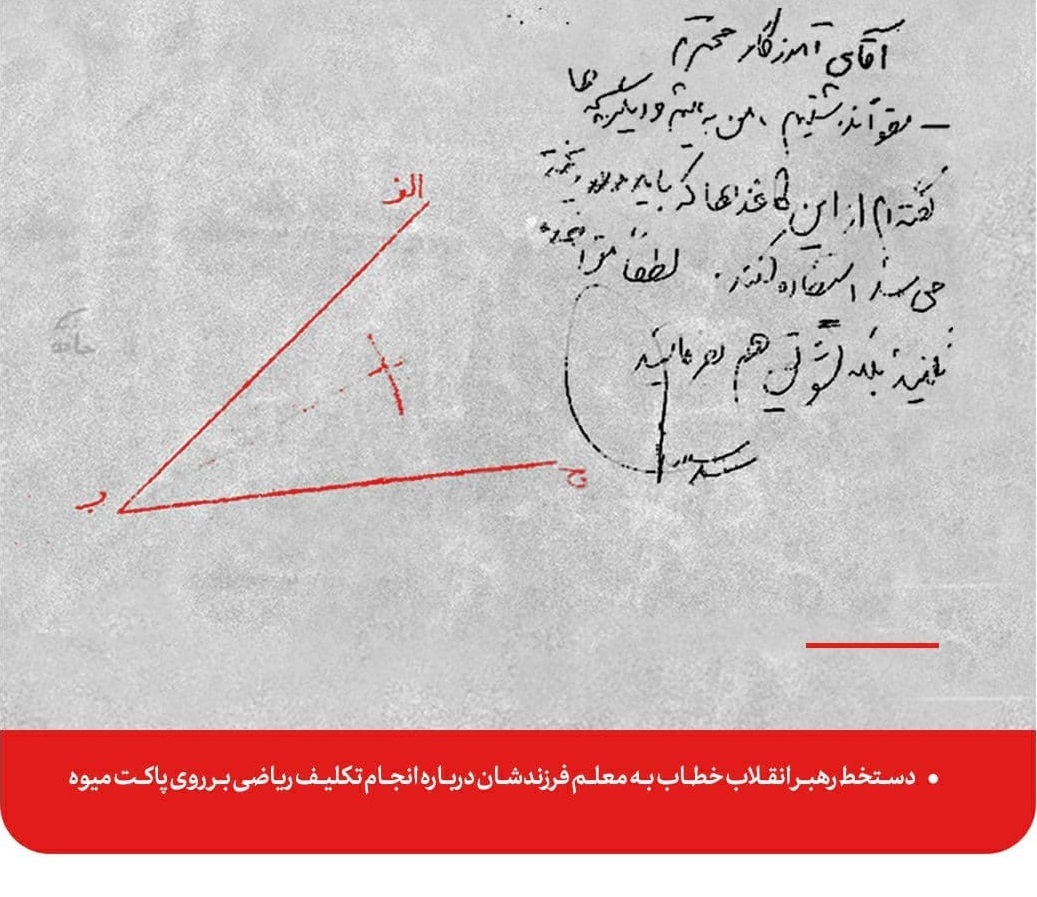 آقای آموزگار محترم
– مقوا نداشتیم، من به میثم و دیگر بچه‌ها
گفته‌ام از این کاغذها که باید دور ریخته
می‌شد استفاده کنند. لطفاً متوجه
نمائید بلکه تشویق هم بفرمائید
الف
ب
ج
• دستخط رهبر انقلاب خطاب به معلم فرزندشان درباره انجام تکلیف ریاضی بر روی پاکت میوه